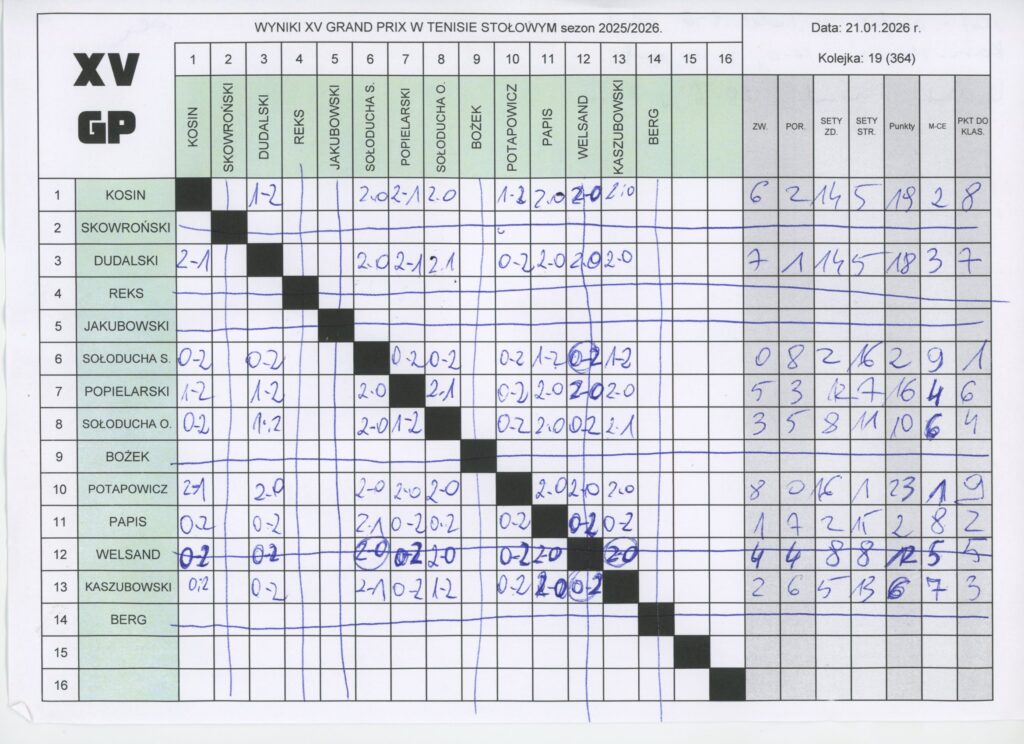 WYNIKI XV GRAND PRIX W TENISIE STOŁOWYM sezon 2025/2026. Data: 21.01.2026 r.
XV GP
1 2 3 4 5 6 7 8 9 10 11 12 13 14 15 16 Kolejka: 19 (364)
KOSIN SKOWROŃSKI DUDALSKI REKS JAKUBOWSKI SOŁODUCHA S. POPIELARSKI SOŁODUCHA O. BOŻEK POTAPOWICZ PAPIS WELSAND KASZUBOWSKI BERG ZW. POR. SETY ZD. SETY STR. Punkty M-CE PKT DO KLAS.
1 KOSIN 1-2 2.0 2-1 2.0 1-2 2.0 2-0 2.0 6 2 14 5 19 2 8
2 SKOWROŃSKI
3 DUDALSKI 2-1 2.0 2-1 2.1 0-2 2-0 2.0 2-0 7 1 14 5 18 3 7
4 REKS
5 JAKUBOWSKI
6 SOŁODUCHA S. 0-2 0-2 0-2 0-2 0-2 1-2 0-2 1-2 0 8 2 16 2 9 1
7 POPIELARSKI 1-2 1-2 2-0 2.1 0-2 2.0 2-0 2.0 5 3 12 7 16 4 6
8 SOŁODUCHA O. 0-2 1-2 2-0 1-2 0-2 2.0 0-2 2-1 3 5 8 11 10 6 4
9 BOŻEK
10 POTAPOWICZ 2-1 2-0 2-0 2-0 2-0 2.0 2-0 2.0 8 0 16 1 23 1 9
11 PAPIS 0-2 0-2 2.1 0-2 0.2 0-2 0-2 0-2 1 7 2 15 2 8 2
12 WELSAND 0-2 0-2 2-0 0-2 2.0 0-2 2.0 2.0 4 4 8 8 12 5 5
13 KASZUBOWSKI 0.2 0-2 2-1 0-2 1-2 0-2 2-0 0-2 2 6 5 13 6 7 3
14 BERG
15
16